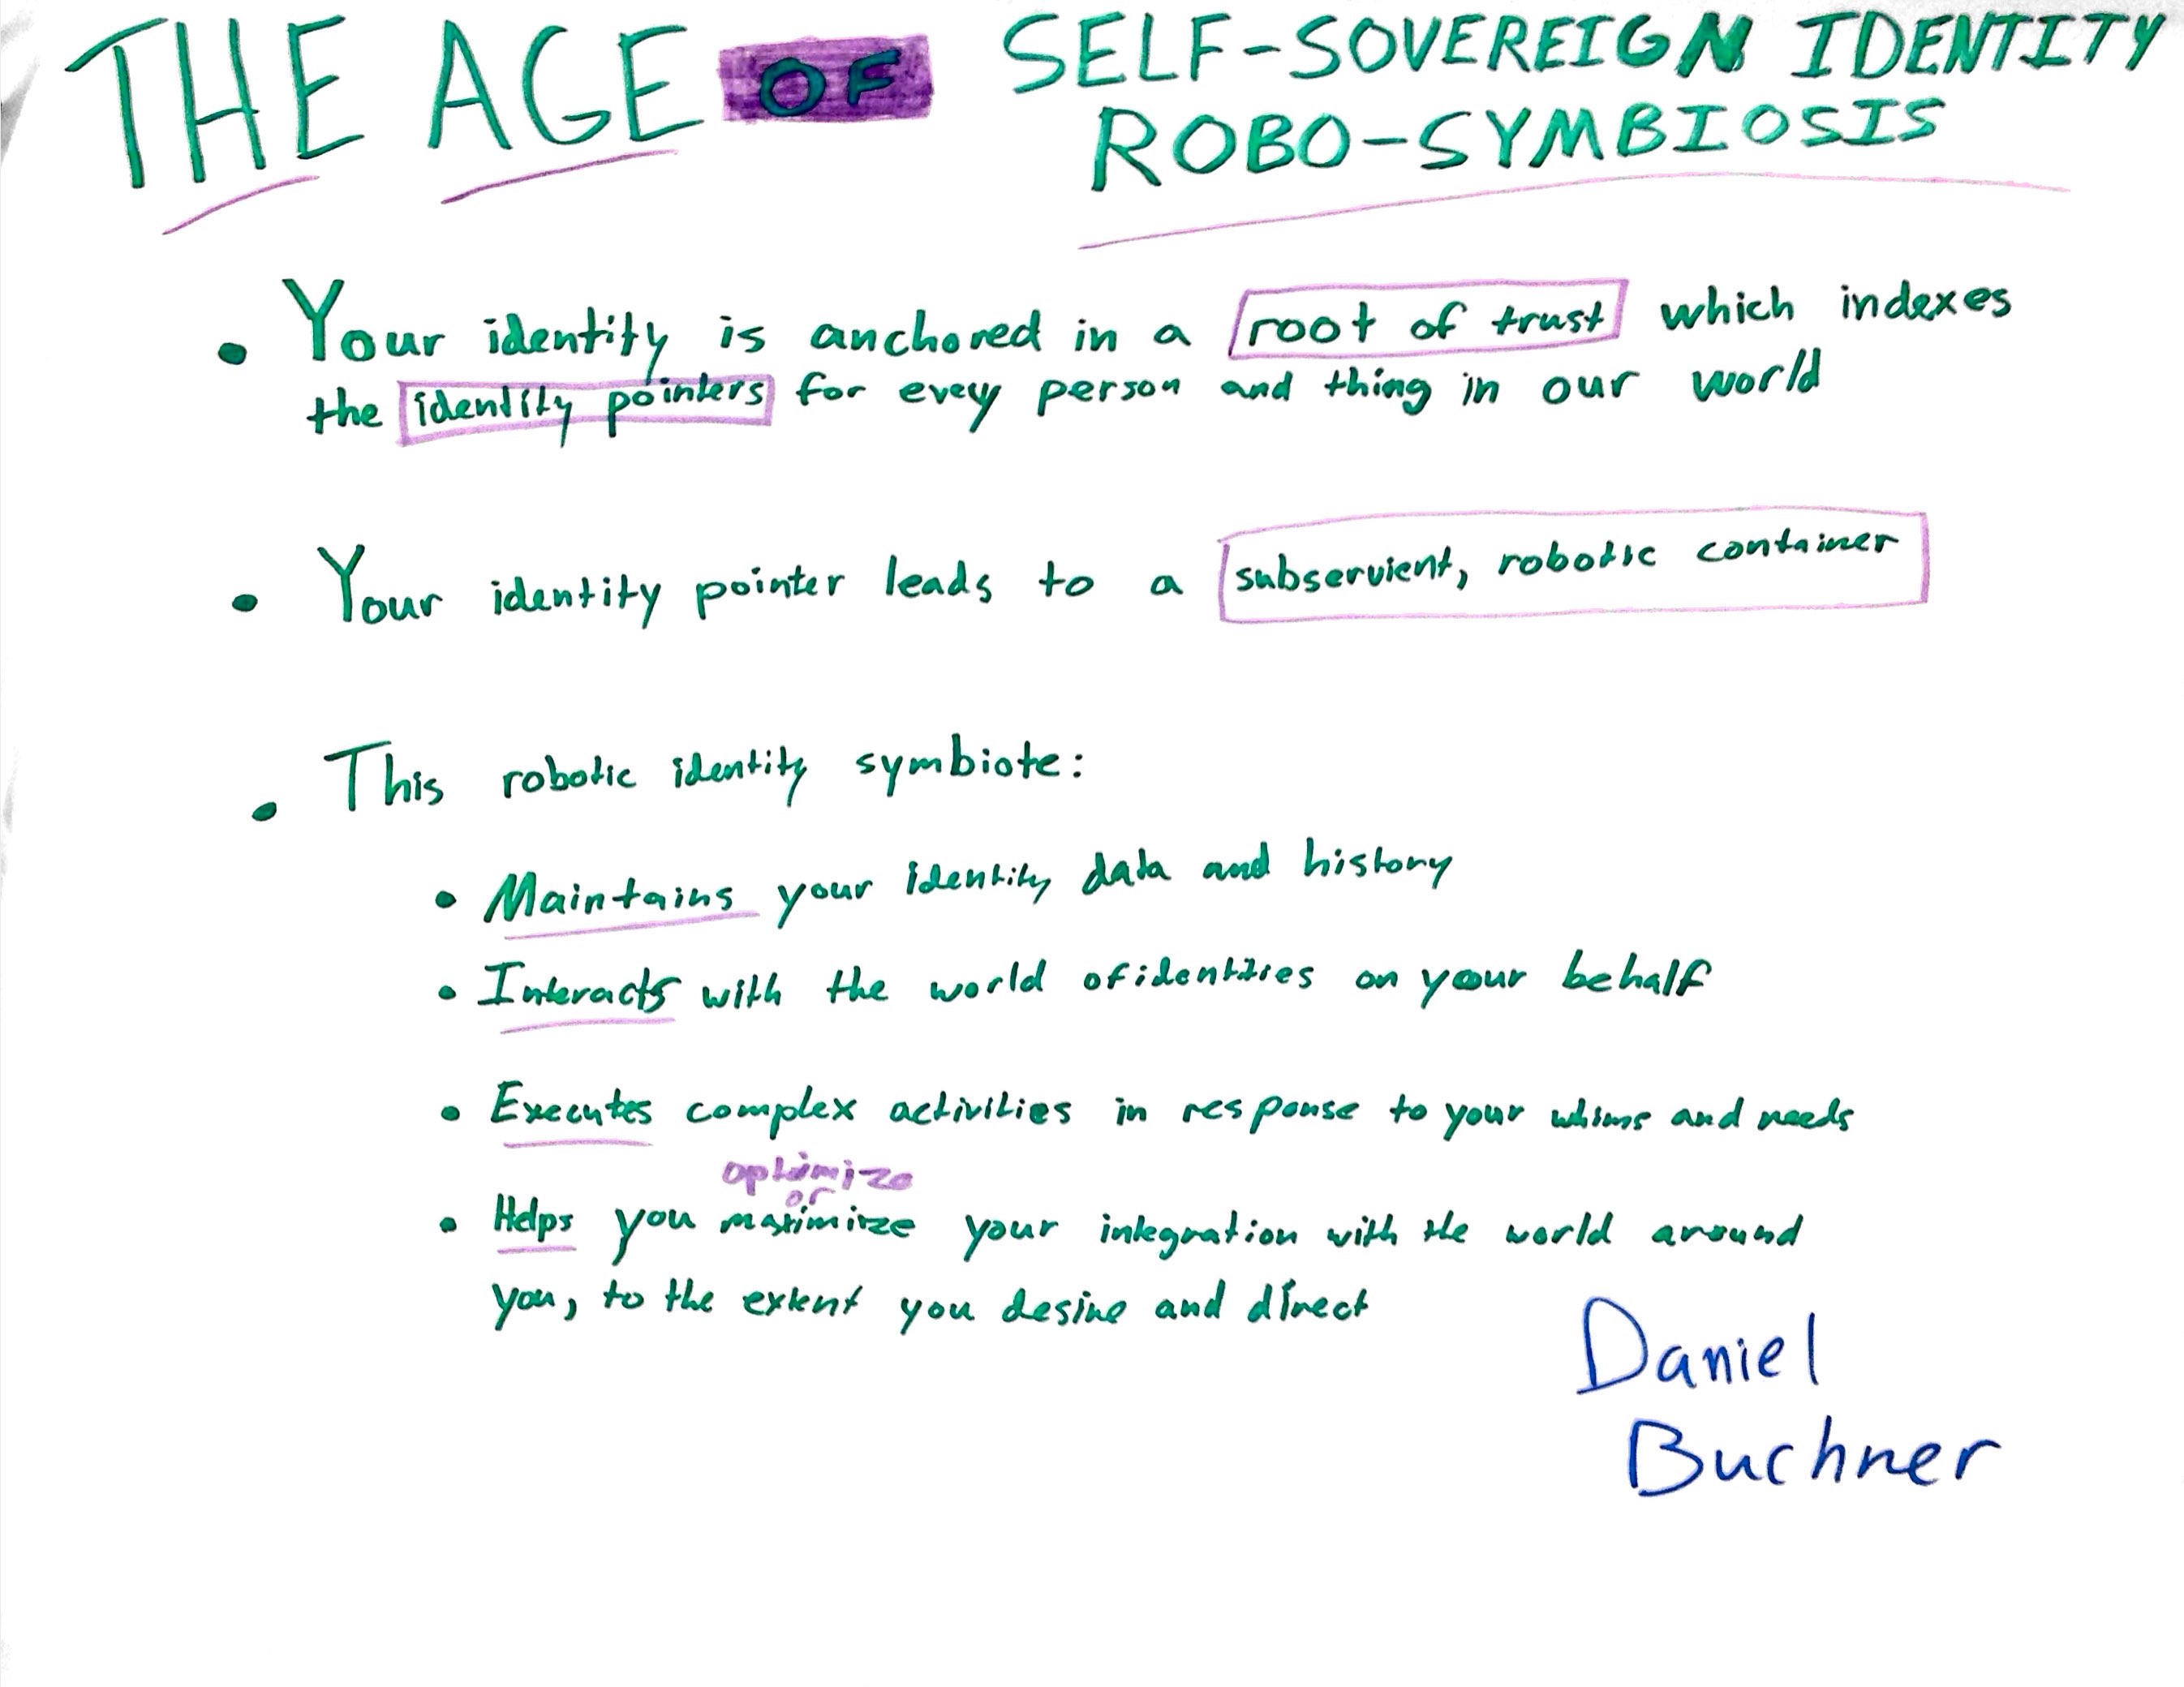 THE AGE OF SELF-SOVEREIGN IDENTITY
ROBO-SYMBIOSIS
• Your identity is anchored in a root of trust which indexes
the identity pointers for every person and thing in our world
• Your identity pointer leads to a subservient, robotic container
• This robotic identity symbiote:
• Maintains your identity data and history
• Interacts with the world of identities on your behalf
• Executes complex activities in response to your whims and needs
optimize
or
• Helps you maximize your integration with the world around
you, to the extent you desire and direct
Daniel
Buchner